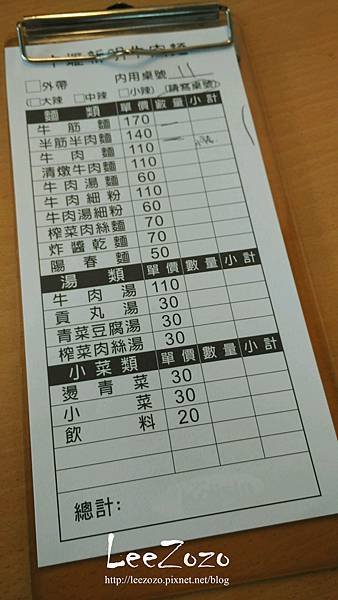 外帶 內用桌號 11
(大辣 中辣 小辣) (請寫桌號)
麵類 單價 數量 小計
牛筋麵 170 一
半筋半肉麵 140 一
牛肉麵 110
清燉牛肉麵 110
牛肉湯麵 60
牛肉細粉 110
牛肉湯細粉 60
榨菜肉絲麵 70
炸醬乾麵 70
陽春麵 50
湯類 單價 數量 小計
牛肉湯 110
貢丸湯 30
青菜豆腐湯 30
榨菜肉絲湯 30
小菜類 單價 數量 小計
燙青菜 30
小菜 30
飲料 20
總計:
LeeZozo
http://leezozo.pixnet.net/blog